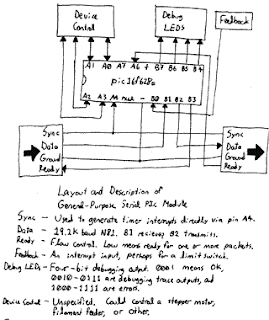 Device
Control
Debug
LEDs
Feedback
A1 A0 A7 A6 + B7 B6 B5 B4
pic16f628a
A2 A3 A4 - B0 B1 B2 B3
Sync
Data
Ground
Ready
Sync
Data
Ground
Ready
Layout and Description of
General-Purpose Serial PIC Module
Sync - Used to generate timer interrupts directly via pin A4.
Data - 19.2k baud N81. B1 recieves, B2 transmits.
Ready - Flow control. Low means ready for one or more packets.
Feedback - An interrupt input, perhaps for a limit switch.
Debug LEDs - Four-bit debugging output. 0001 means OK,
0010-0111 are debugging trace outputs, and
1000-1111 are errors.
Device Control - Unspecified. Could control a stepper motor,
filament feeder, or other.